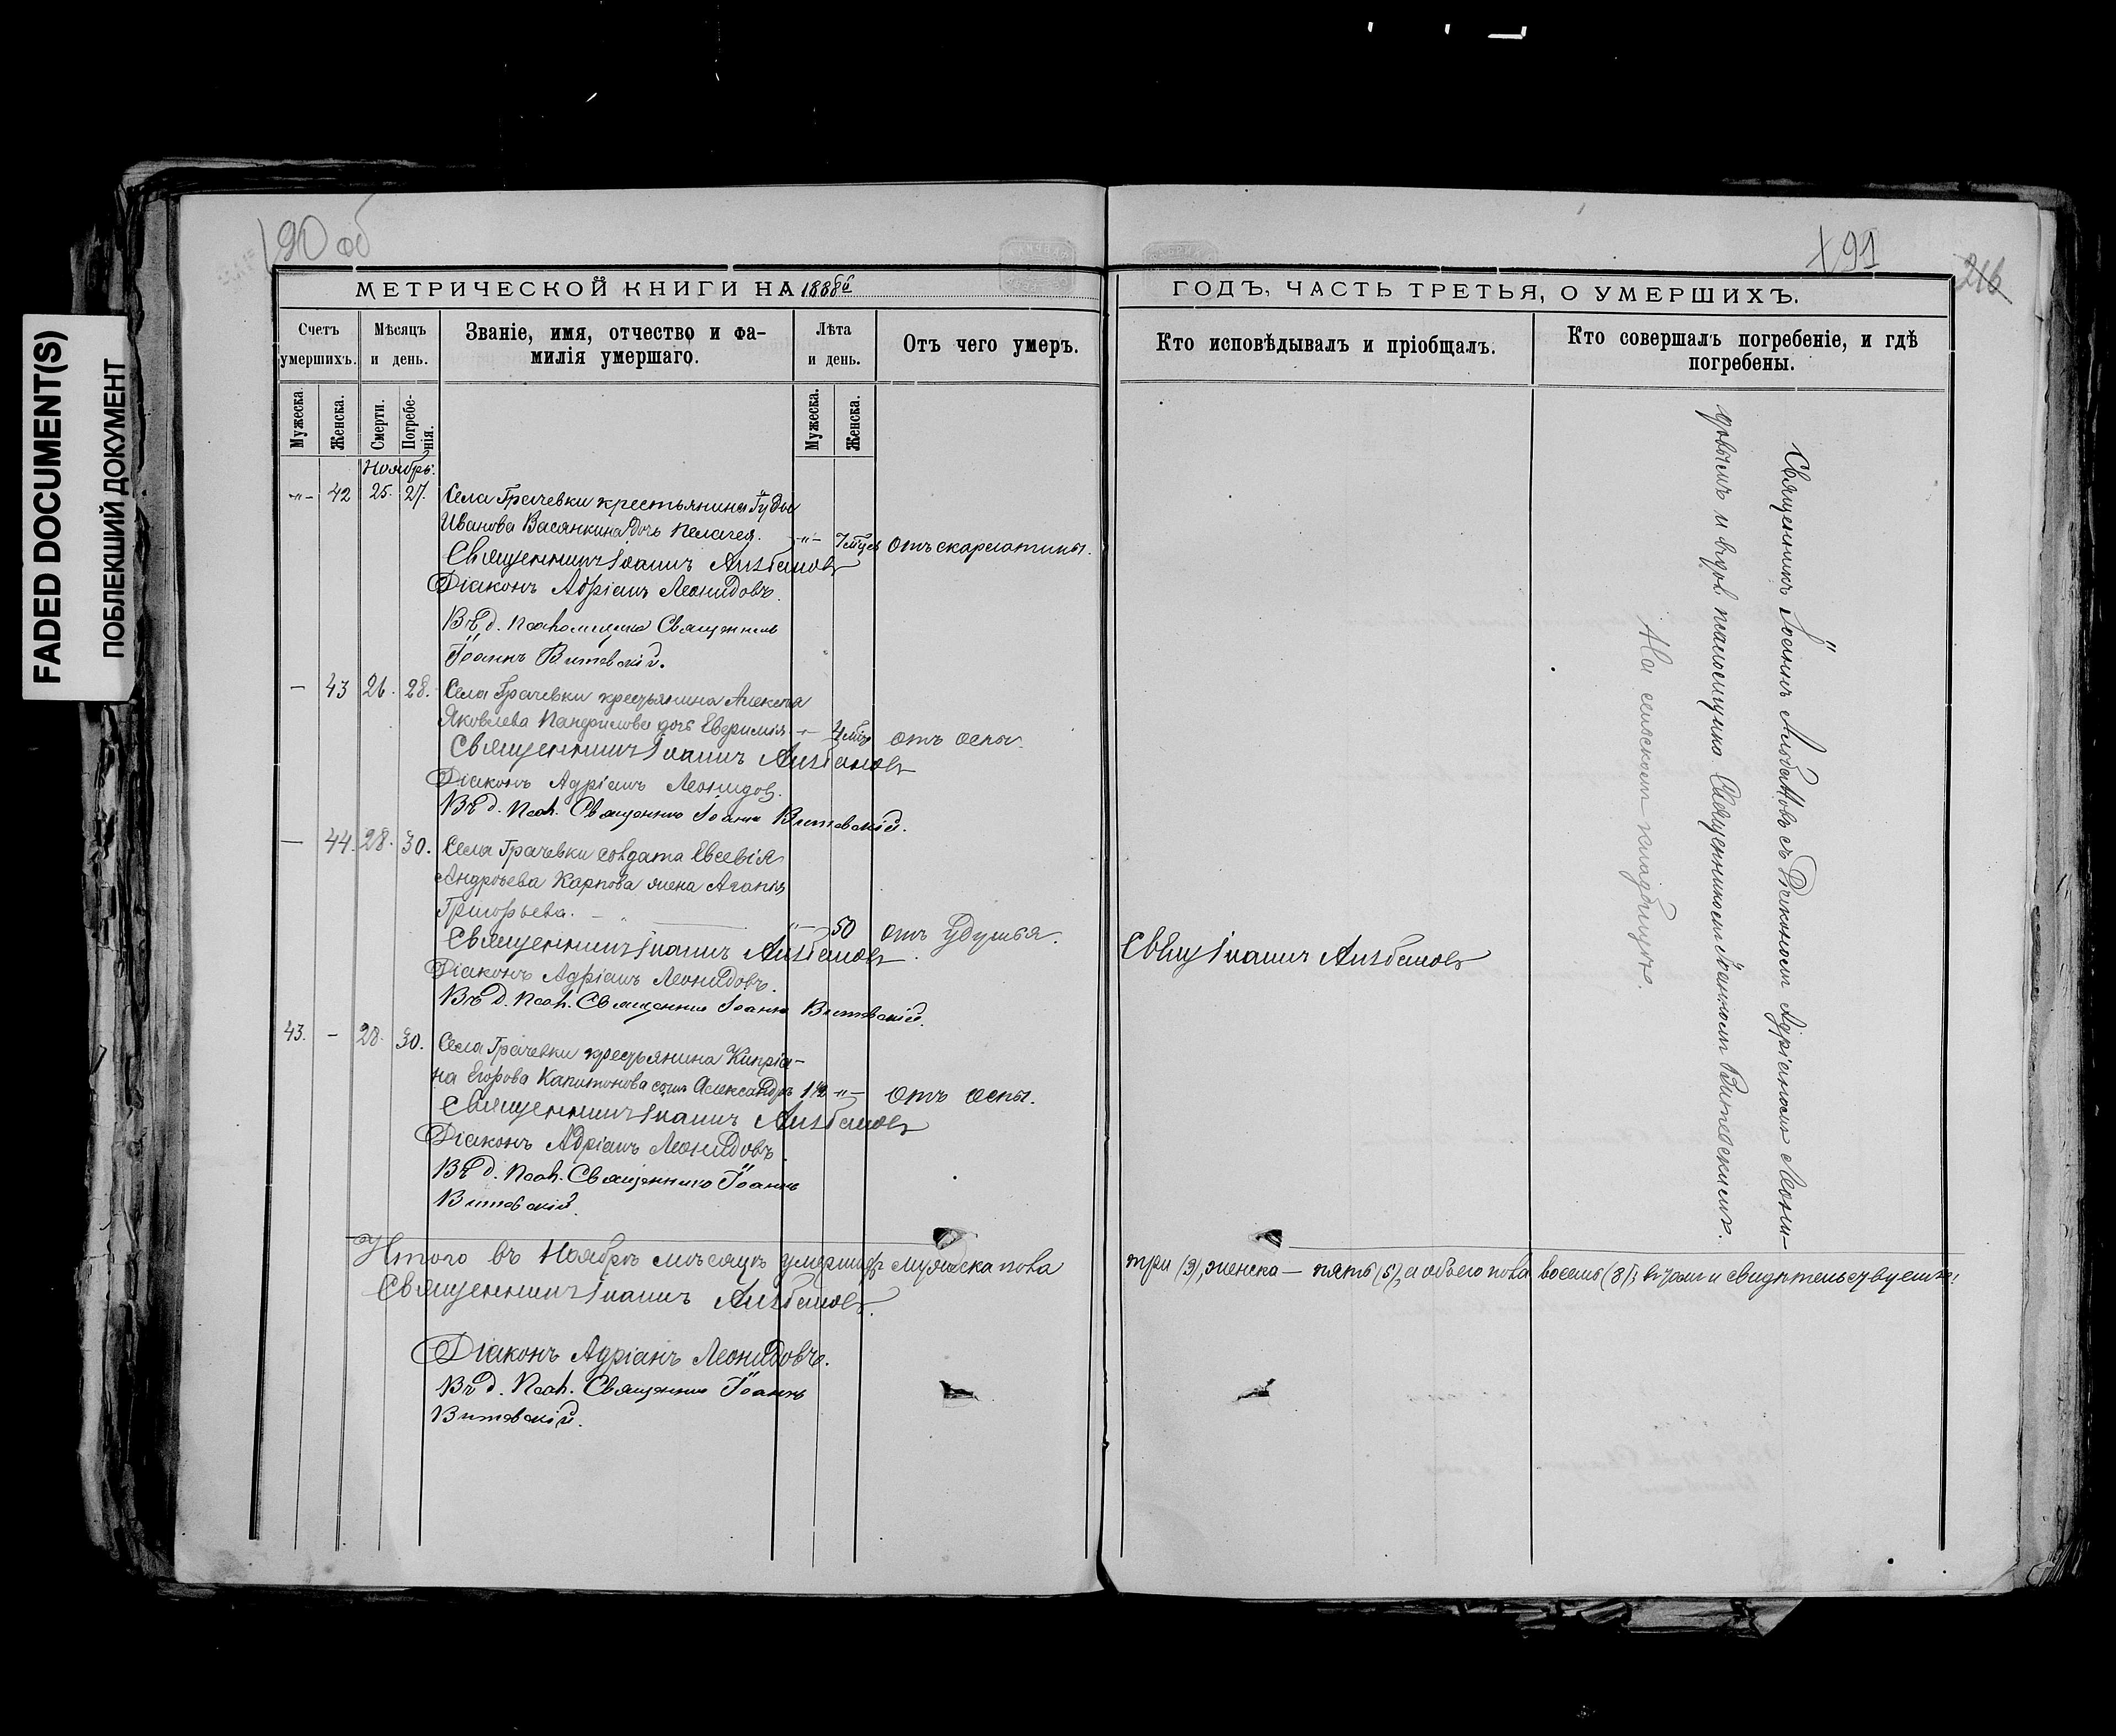 FADED DOCUMENT(S)
ПОБЛЕКШИЙ ДОКУМЕНТ
190 об
191
216
МЕТРИЧЕСКОЙ КНИГИ НА 1888й
ГОДЪ, ЧАСТЬ ТРЕТЬЯ, О УМЕРШИХЪ.
Счетъ умершихъ.
Мѣсяцъ и день.
Званіе, имя, отчество и фа-
милія умершаго.
Лѣта и день.
Отъ чего умеръ.
Кто исповѣдывалъ и пріобщалъ.
Кто совершалъ погребеніе, и гдѣ
погребены.
Мужеска.
Женска.
Смерти.
Погребе-
нія.
Мужеска.
Женска.
Ноябрь.
-"- 42 25. 27. Села Грачевки крестьянина
Иванова Васянкина дочь Пелагея. -"- Отъ скарлатины.
Священникъ Іоаннъ
Діаконъ Адріанъ Леонидовъ.
Въ д. Псаломщика Священникъ
Іоаннъ Витевскій.
— 43 26. 28. Села Грачевки крестьянина Алексѣя
Яковлева Панфилова дочь Евфимія -"- 4 отъ оспы.
Священникъ Іоаннъ
Діаконъ Адріанъ Леонидовъ.
Въ д. Псал. Священникъ Іоаннъ Витевскій.
— 44. 28. 30. Села Грачевки солдата Евсевія
Андреева Карпова жена Агапія
Григорьева. -"- 50 отъ удушья.
Священникъ Іоаннъ
Свящ Іоаннъ
Діаконъ Адріанъ Леонидовъ.
Въ д. Псал. Священникъ Іоаннъ Витевскій.
43. - 28. 30. Села Грачевки крестьянина Кипріа-
на Егорова Капитонова сынъ Александръ 1½ -"- Отъ оспы.
Священникъ Іоаннъ
Діаконъ Адріанъ Леонидовъ
Въ д. Псал. Священникъ Іоаннъ
Витевскій.
Священникъ Іоаннъ съ Діакономъ Адріаномъ Леони-
довымъ и и.д. псаломщика Священникомъ Іоанномъ Витевскимъ.
На сельскомъ кладбищѣ.
Итого въ Ноябрѣ мѣсяцѣ умершихъ мужеска пола три (3), женска — пять (5), а обоего пола восемь (8); въ чемъ и свидѣтельствуемъ:
Священникъ Іоаннъ
Діаконъ Адріанъ Леонидовъ.
Въ д. Псал. Священникъ Іоаннъ
Витевскій.